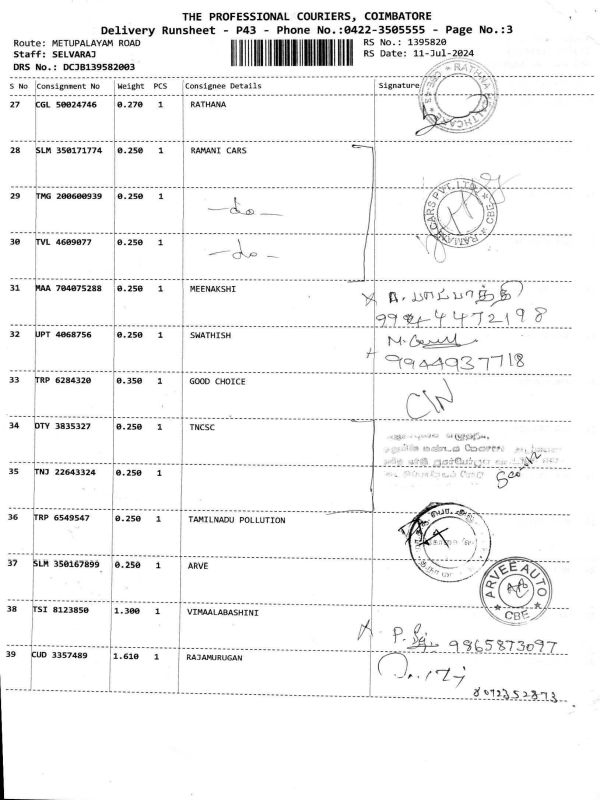 THE PROFESSIONAL COURIERS, COIMBATORE
Delivery Runsheet - P43 - Phone No.:0422-3505555 - Page No.:3
Route: METUPALAYAM ROAD
RS No.: 1395820
Staff: SELVARAJ
RS Date: 11-Jul-2024
DRS No.: DCJB139582003
S No Consignment No Weight PCS Consignee Details Signature
27 CGL 50024746 0.270 1 RATHANA
RATHNA
28 SLM 350171774 0.250 1 RAMANI CARS
29 TMG 200600939 0.250 1 -do-
RAMANI CARS PVT. LTD. CBE
30 TVL 4609077 0.250 1 -do-
31 MAA 704075288 0.250 1 MEENAKSHI
32 UPT 4068756 0.250 1 SWATHISH
9944937718
33 TRP 6284320 0.350 1 GOOD CHOICE
34 DTY 3835327 0.250 1 TNCSC
35 TNJ 22643324 0.250 1
36 TRP 6549547 0.250 1 TAMILNADU POLLUTION
37 SLM 350167899 0.250 1 ARVE
ARVEE AUTO
CBE
38 TSI 8123850 1.300 1 VIMAALABASHINI
9865873097
39 CUD 3357489 1.610 1 RAJAMURUGAN